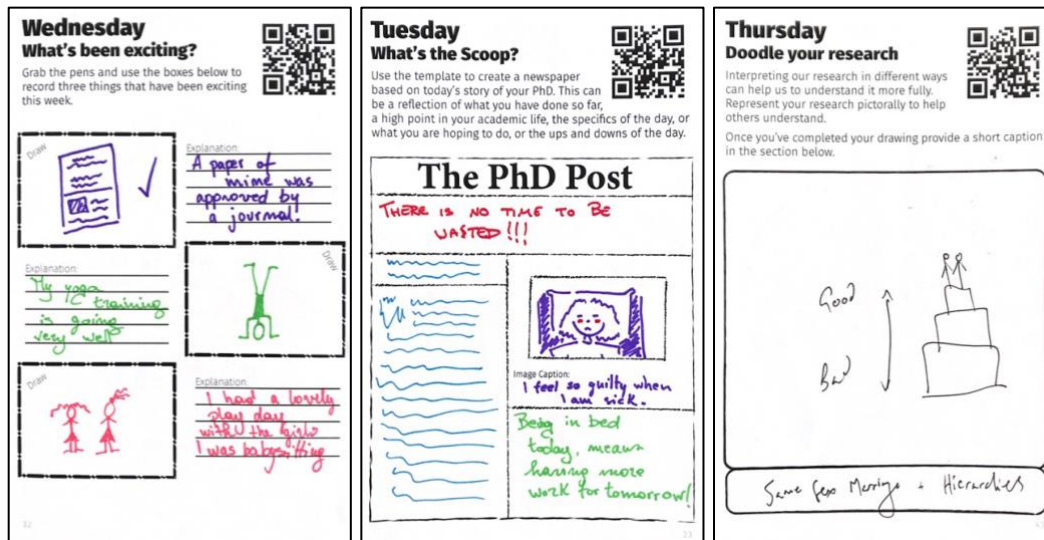 Wednesday
What's been exciting?
Grab the pens and use the boxes below to
record three things that have been exciting
this week.
Draw
Explanation:
A paper of
mine was
approved by
a journal!
Explanation:
My yoga
training
is going
very well
Draw
Draw
Explanation:
I had a lovely
play day
with the girls
I was babysitting
32
Tuesday
What's the Scoop?
Use the template to create a newspaper
based on today's story of your PhD. This can
be a reflection of what you have done so far,
a high point in your academic life, the specifics of the day, or
what you are hoping to do, or the ups and downs of the day.
The PhD Post
THERE IS NO TIME TO BE
WASTED!!!
Image Caption:
I feel so guilty when
I am sick.
Being in bed
today, means
having more
work for tomorrow!
23
Thursday
Doodle your research
Interpreting our research in different ways
can help us to understand it more fully.
Represent your research pictorally to help
others understand.
Once you've completed your drawing provide a short caption
in the section below.
Good
Bad
Same Sex Marriage + Hierarchies